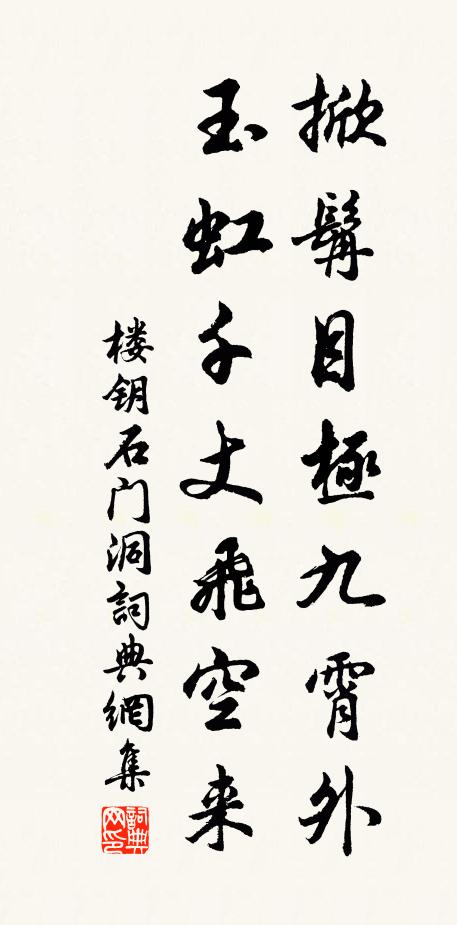 掀髯目極九霄外
玉虹千丈飛空来
楼钥石门洞詞典網集
詞典網印